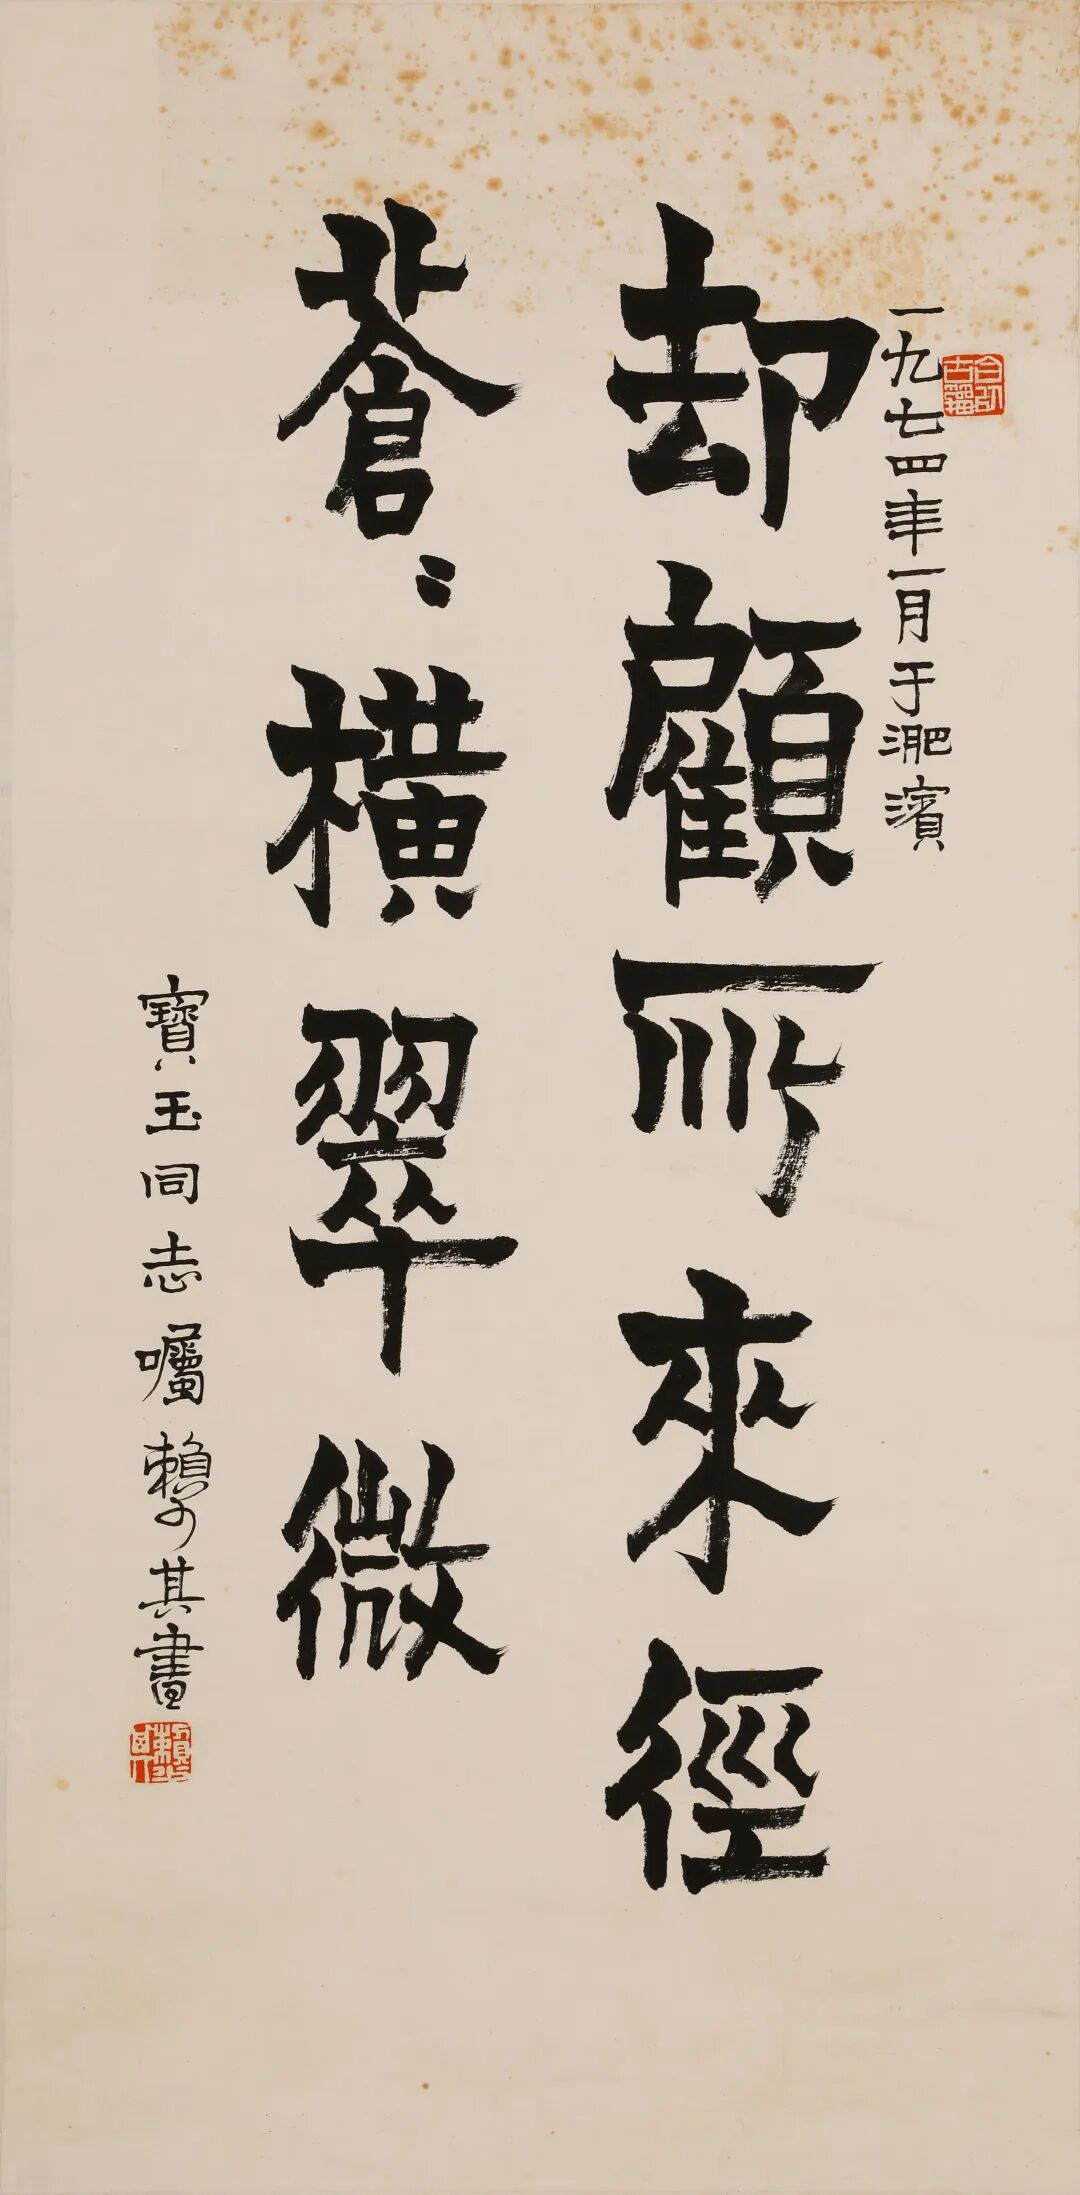 一九七四年一月于淝濱
却顧所來徑
蒼〻橫翠微
寶玉同志囑賴少其書